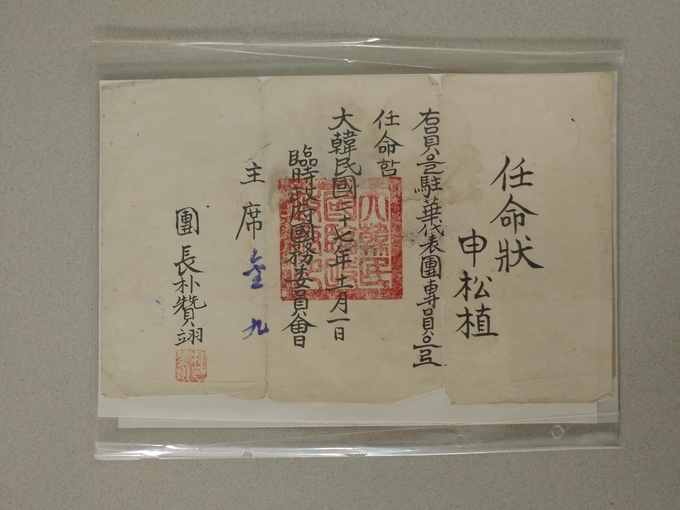 任命狀
申松植
右員을駐華代表團專員으로
任命함
大韓民國二十七年十一月一日
臨時政府國務委員會
主席 金九
團長 朴贊翊